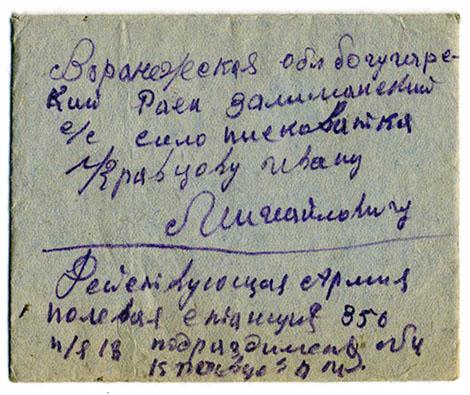 Воранежская обл богучаре-
кий Раен залиманский
с/с сило писковатка
Кравцову ивану
Михайловичу
Действующая Армия
полевая станция 356
п/я 18